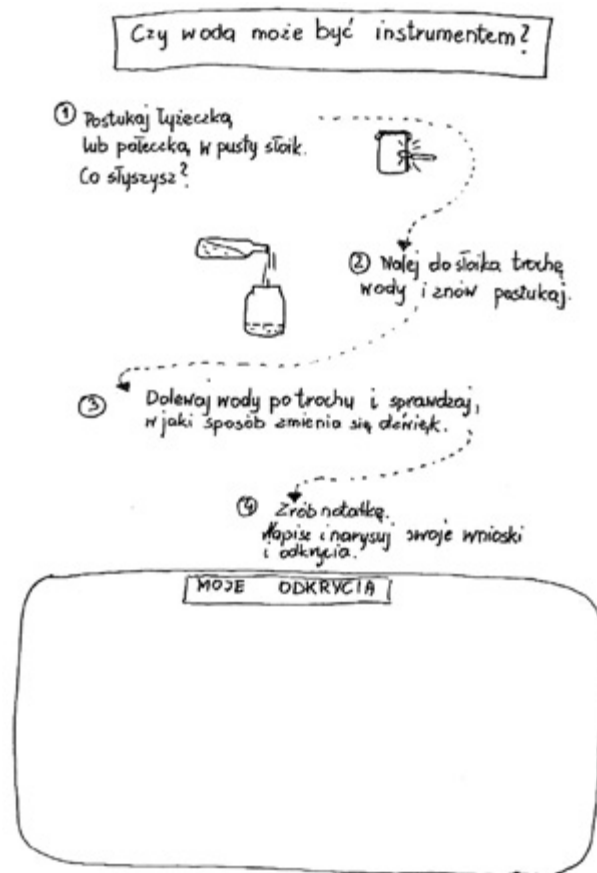 Czy woda może być instrumentem?
① Postukaj łyżeczką
lub pałeczką w pusty słoik.
Co słyszysz?
② Nalej do słoika trochę
wody i znów postukaj.
③ Dolewaj wody po trochu i sprawdzaj,
w jaki sposób zmienia się dźwięk.
④ Zrób notatkę.
Napisz i narysuj swoje wnioski
i odkrycia.
MOJE ODKRYCIA